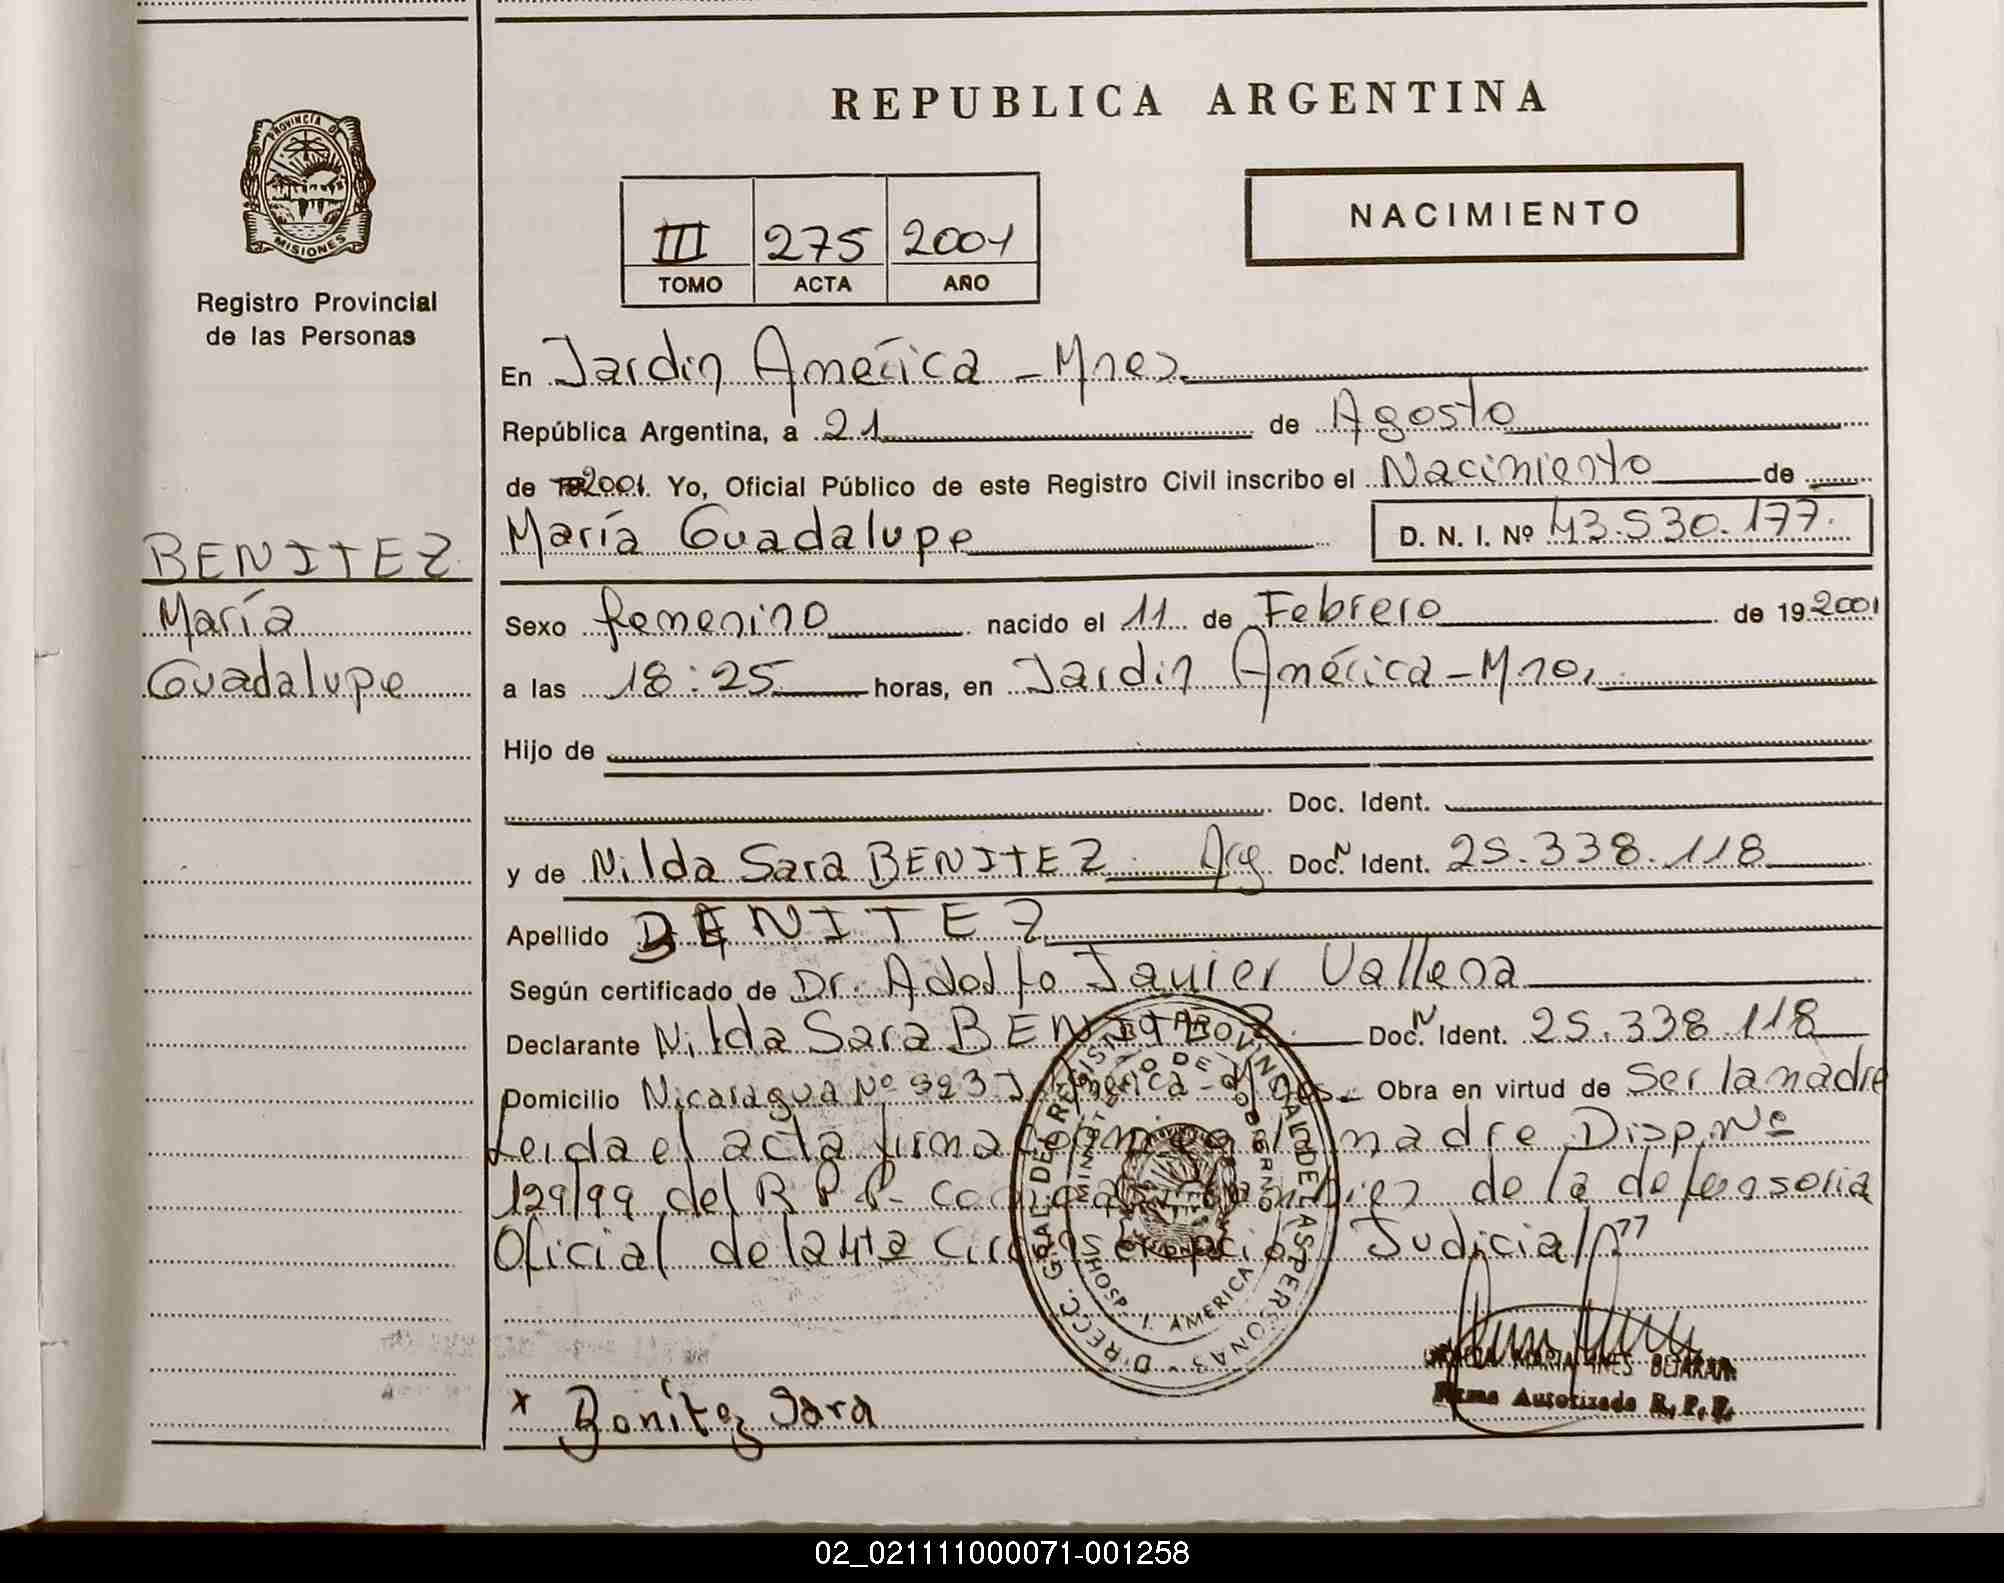 REPUBLICA ARGENTINA
PROVINCIA D
MISIONES
Registro Provincial
de las Personas
III 275 2001
TOMO ACTA AÑO
NACIMIENTO
En Jardin América - Mnes
República Argentina, a 21 de Agosto
de 2001. Yo, Oficial Público de este Registro Civil inscribo el Nacimiento de
María Guadalupe D. N. I. Nº 43.530.177.
BENITEZ
María
Guadalupe
Sexo femenino nacido el 11 de Febrero de 19 2001
a las 18:25 horas, en Jardin América - Mnes
Hijo de
Doc. Ident.
y de Nilda Sara BENITEZ. Arg Doc. N Ident. 25.338.118
Apellido BENITEZ
Según certificado de Dr. Adolfo Javier Vallena
Declarante Nilda Sara BENITEZ. Doc. N Ident. 25.338.118
Domicilio Nicaragua Nº 923 J. América - Mnes. Obra en virtud de Ser la madre
Leida el acta firma la madre Disp. Nº
129/99 del R.P.P. de la defensoria
Oficial de la 4ta Circunscripción Judicial
DIRECC. GRAL. DEL REGISTRO PROVINCIAL DE LAS PERSONAS
MINISTERIO DE GOBIERNO
HOSP. J. AMERICA
x Benítez Sara
MARIA INES BEJARAN
Firma Autorizada R. P. P.
02_021111000071-001258